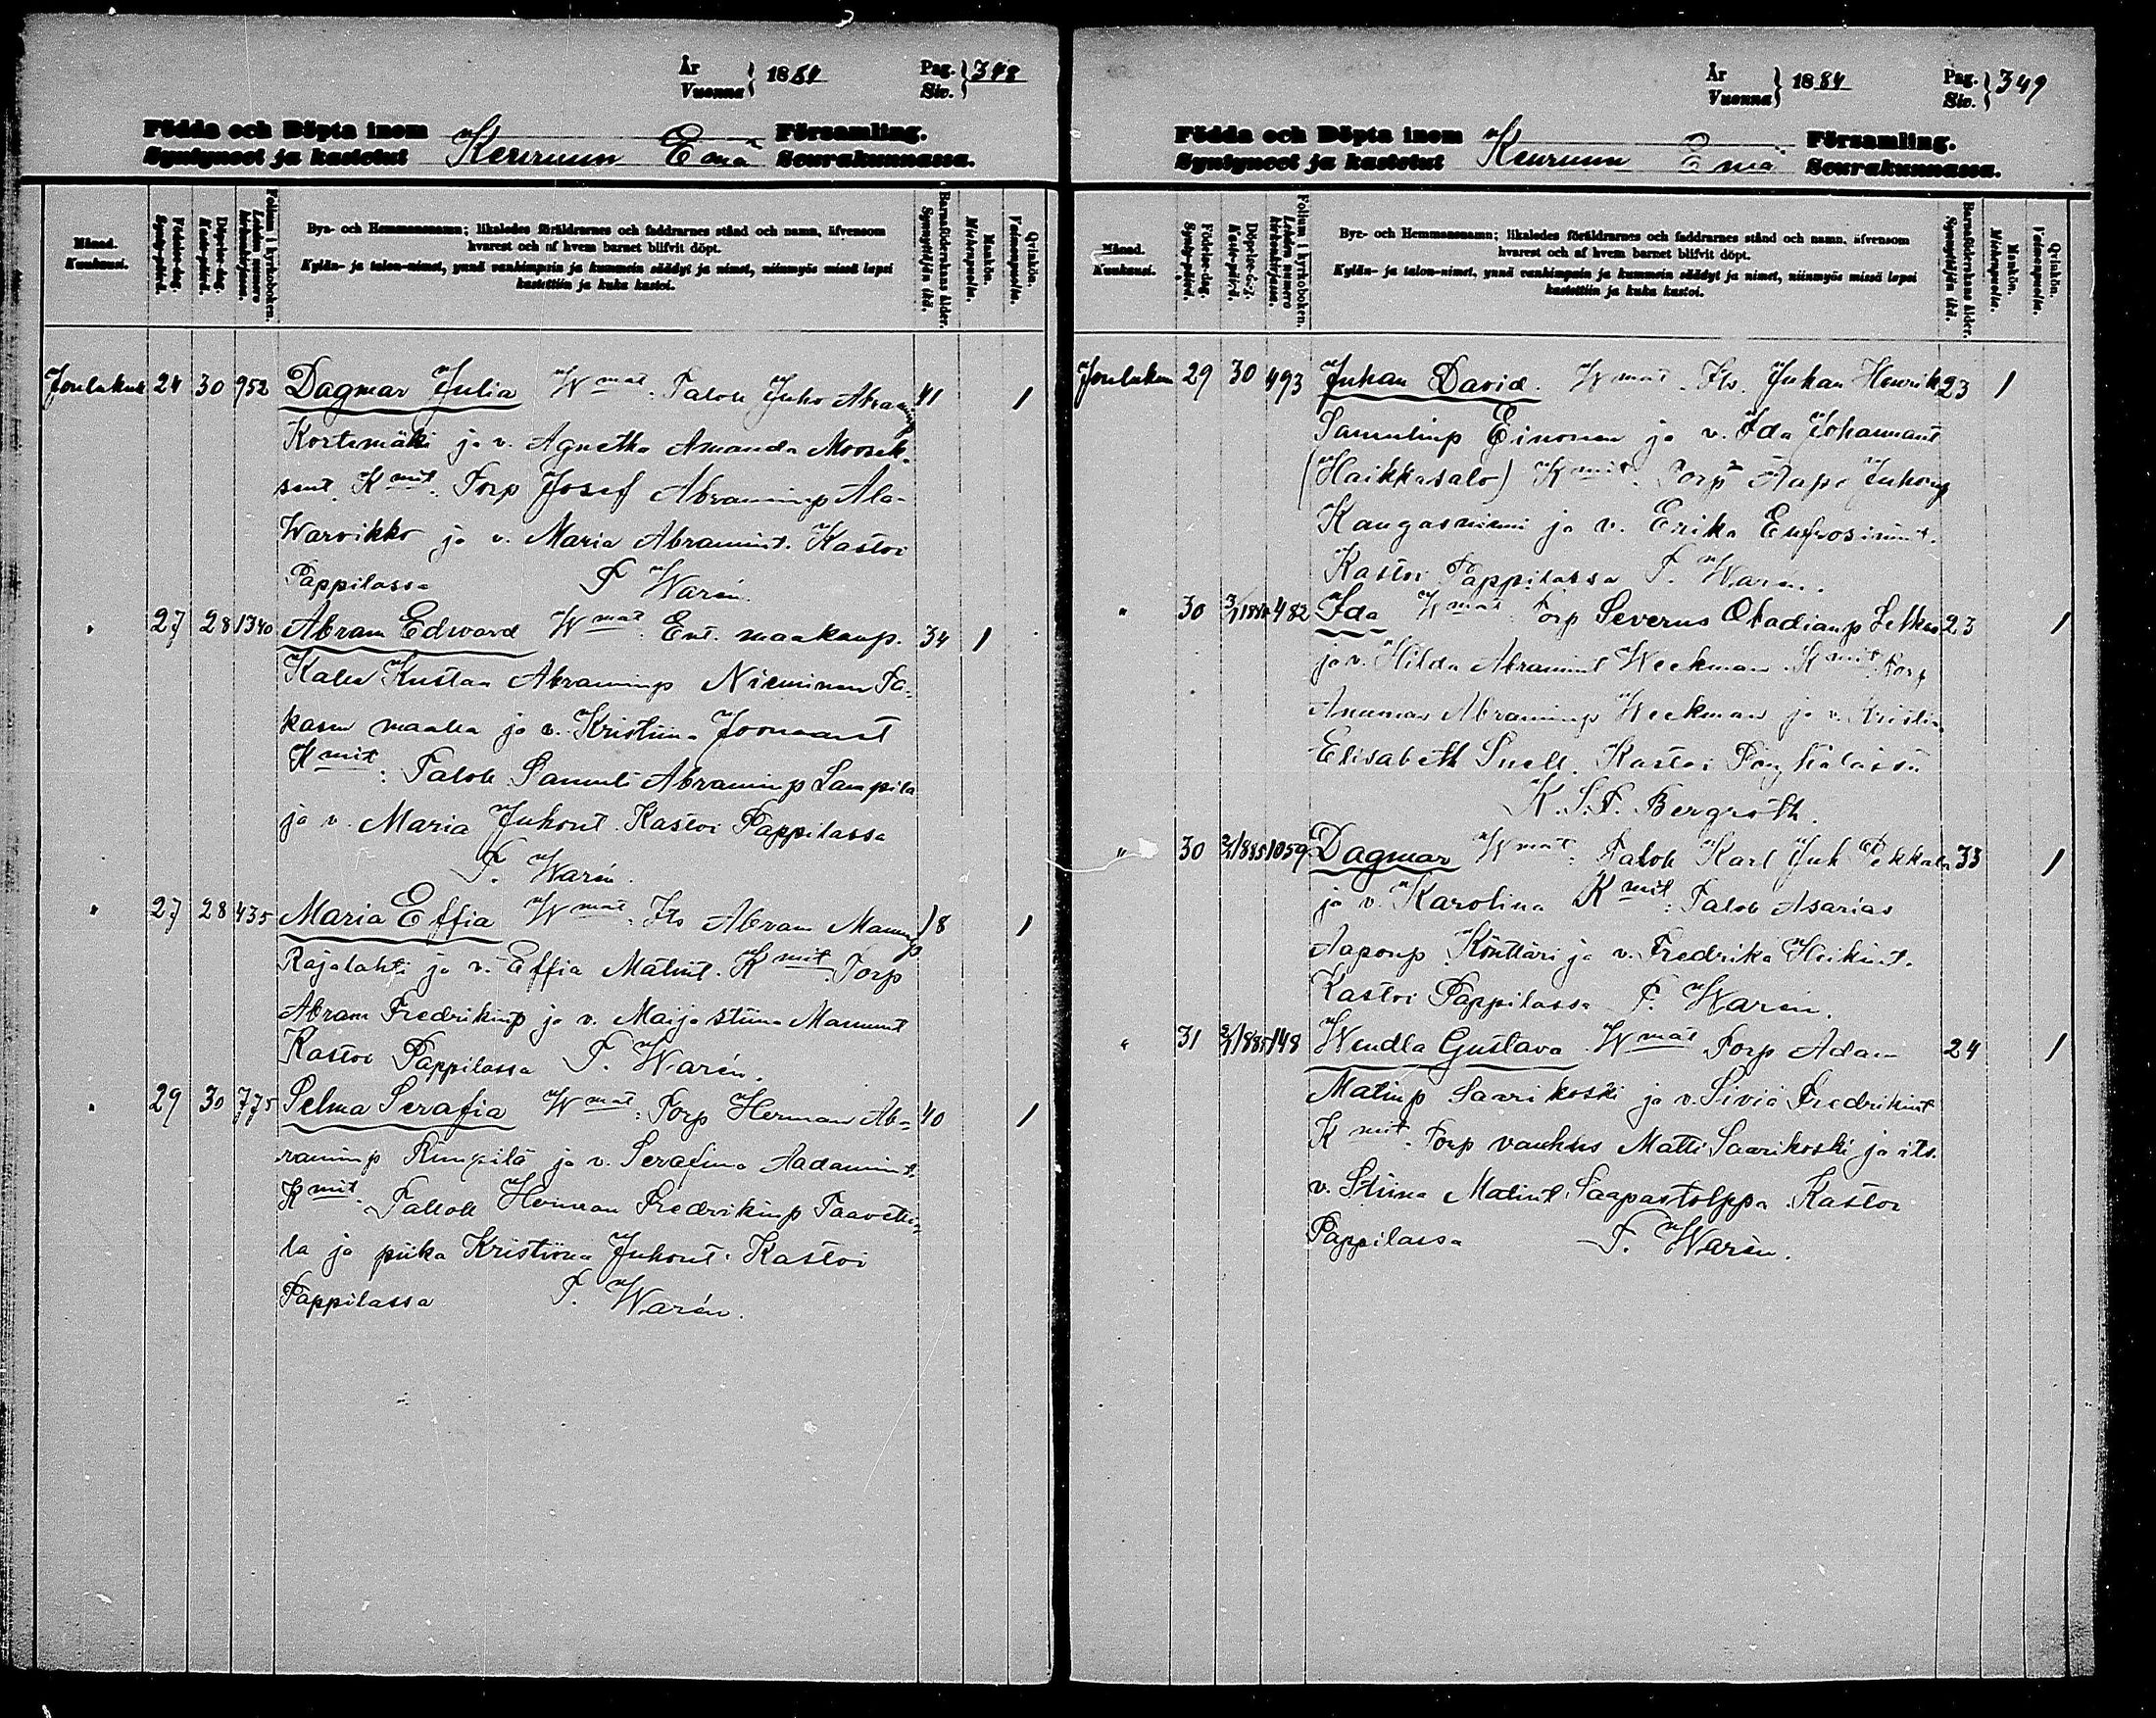 År
Vuonna } 1884 Pag.
Siv. } 348
Födda och Döpta inom Keuruun Emä Församling.
Syntyneet ja kastetut Seurakunnassa.
Månad.
Kuukausi.
Födelse-dag.
Synty-päivä.
Döpelse-dag.
Kaste-päivä.
Folium i kyrkoboken.
Lehden numero kirkonkirjassa.
Bya- och Hemmansnamn; likaledes föräldrarnes och faddrarnes stånd och namn, äfvensom
hvarest och af hvem barnet blifvit döpt.
Kylän- ja talon-nimet, ynnä vanhimpain ja kummein säädyt ja nimet, niinmyös missä lapsi
kastettiin ja kuka kastoi.
Barnaföderskans ålder.
Synnyttäjän ikä.
Mankön.
Miehenpuolia.
Qvinkön.
Vaimonpuolia.
Joulukuu 24 30 952 Dagmar Julia Wmat. Talok Juho Abraminp 41 1
Kortemäki ja v. Agnetha Amanda Moosek-
sent. Kmit: Torp Josef Abraminp Ala-
Warvikko ja v. Maria Abramint. Kastoi
Pappilassa T Warén.
" 27 28 1340 Abram Edward Wmat: Ent. maakaup. 34 1
Kalle Kustaa Abraminp Nieminen Pa-
kasen maalla ja v. Kristiina Joonaant
Kmit: Talok Samuli Abraminp Lampila
ja v. Maria Juhont. Kastoi Pappilassa
T. Warén.
" 27 28 435 Maria Effia Wmat. Its Abram Manunp 18 1
Rajalahti ja v. Effia Matint. Kmit. Torp
Abram Fredrikinp ja v. Maija Stiina Manunt
Kastoi Pappilassa T. Warén.
" 29 30 775 Selma Serafia Wmat: Torp Herman Ab- 40 1
raminp Rimpilä ja v. Serafina Aadamint.
Kmit. Tallok Herman Fredrikinp Taavetti-
la ja piika Kristiina Juhont. Kastoi
Pappilassa T. Warén.
År
Vuonna } 1884 Pag.
Siv. } 349
Födda och Döpta inom Keuruun Emä Församling.
Syntyneet ja kastetut Seurakunnassa.
Månad.
Kuukausi.
Födelse-dag.
Synty-päivä.
Döpelse-dag.
Kaste-päivä.
Folium i kyrkoboken.
Lehden numero kirkonkirjassa.
Bya- och Hemmansnamn; likaledes föräldrarnes och faddrarnes stånd och namn, äfvensom
hvarest och af hvem barnet blifvit döpt.
Kylän- ja talon-nimet, ynnä vanhimpain ja kummein säädyt ja nimet, niinmyös missä lapsi
kastettiin ja kuka kastoi.
Barnaföderskans ålder.
Synnyttäjän ikä.
Mankön.
Miehenpuolia.
Qvinkön.
Vaimonpuolia.
Joulukuu 29 30 493 Juhan David. Wmat. Its. Juhan Henrik 23 1
Samulinp Einonen ja v. Ida Johannant
(Haikkasalo) Kmit. Torp Aapo Juhonp
Kangasniemi ja v. Erika Eufrosinint.
Kastoi Pappilassa T. Warén.
" 30 482 Ida Wmat Torp Severus Obadianp Selkee 23 1
ja v. Hilda Abramint Weekman. Kmit Torp
Abraminp Weekman ja v. Kristin
Elisabeth Snell. Kastoi
K. S. T. Bergroth.
" 30 2/1 1885 1059 Dagmar Wmat: Talok Karl Juh Pekkala 33 1
ja v. Karolina Kmit: Talok Asarias
Aaponp Könttäri ja v. Fredrika Heikint.
Kastoi Pappilassa T. Warén.
" 31 2/1 1885 148 Wendla Gustava Wmat Torp Adam 24 1
Matinp Saarikoski ja v. Siviä Fredrikint
Kmit. Torp vanhus Matti Saarikoski ja its.
v. Stiina Matint Saapastolppa. Kastoi
Pappilassa T. Warén.